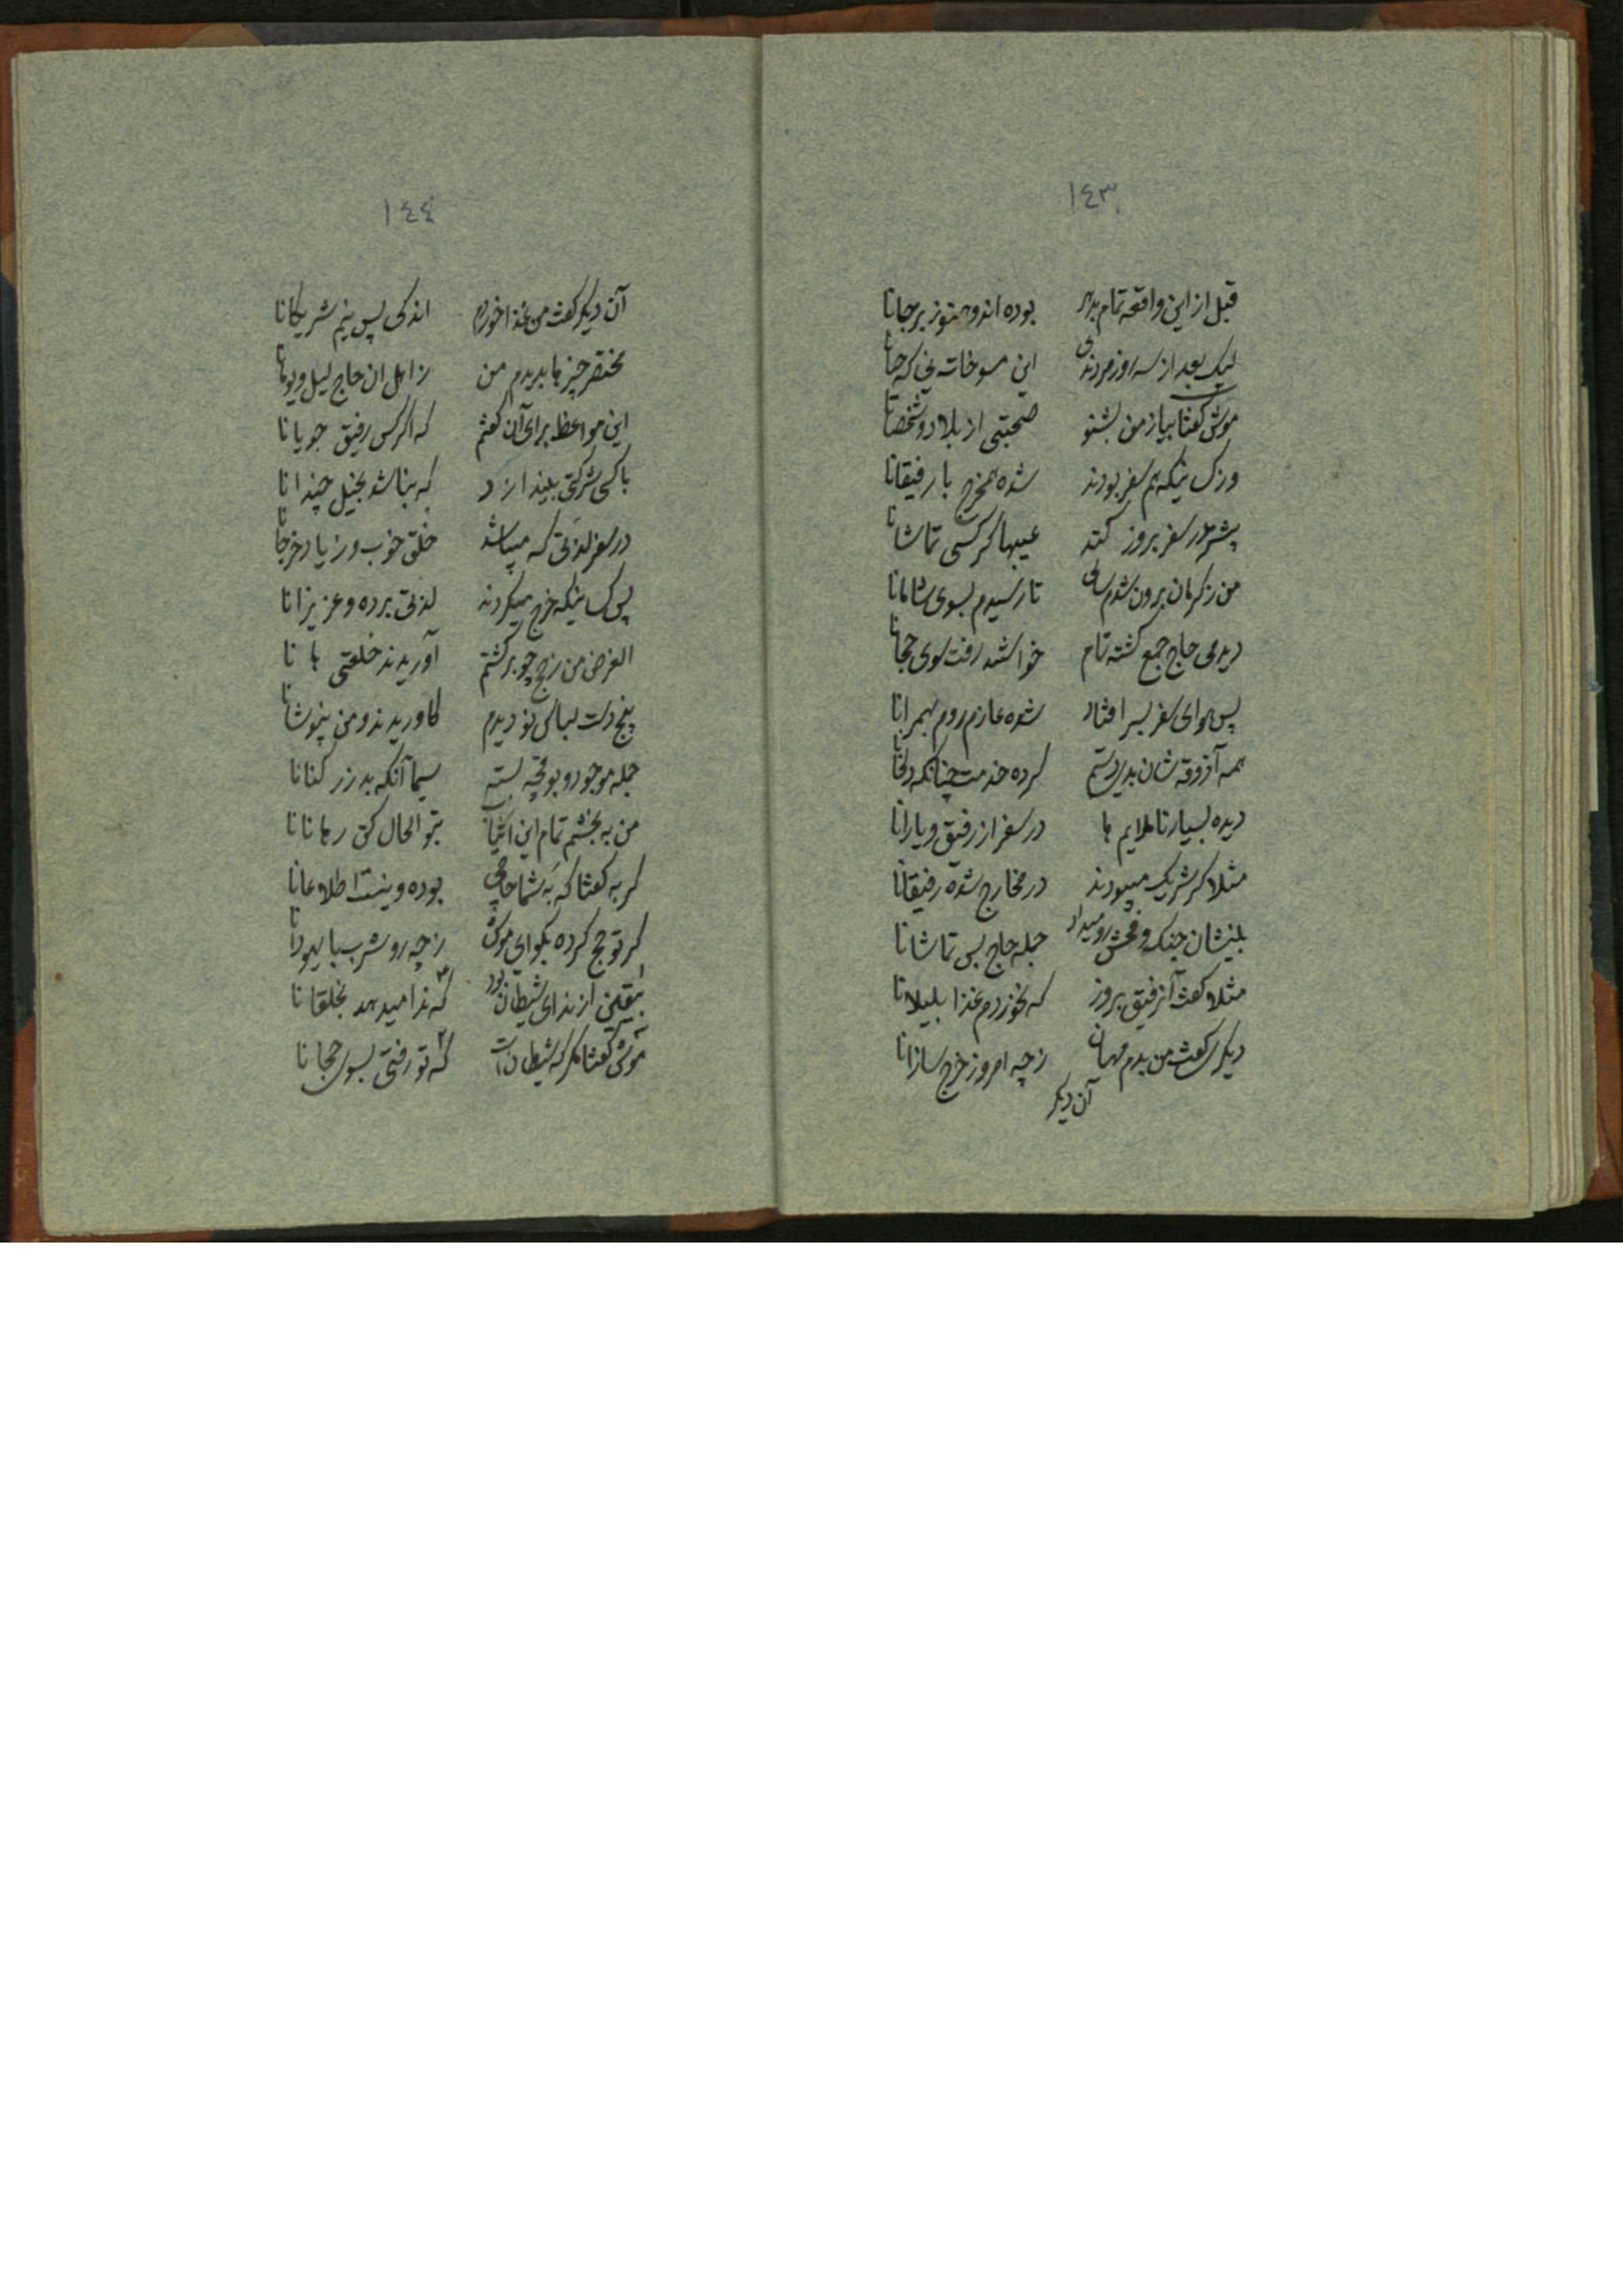 ١٤٣
قبل از این واقعه تمام بدهر بوده اند و هنوز برجانا
لیک بعد از سه روز مردندی این سوخات نی که
موش گفتا بیا ز من بشنو صحبتی از بلاد و شخصانا
ورنه هم سفر بودند شده همخرج با رفیقانا
در سفر بروز کند عیبها گر کسی تماشانا
من ز کرمان برون شدم سالی تا رسیدم بسوی شامانا
دیدمی حاج جمع گشته تمام خواستند رفت سوی حجانا
پس هوای سفر بسر افتاد شده عازم روم بهمرانا
همه آذوقه شان بدی دستم کرده خدمت چنانکه دلخانا
دیده بسیار ناملایم ها در سفر از رفیق و یارانا
مثلا گر شریک میبودند در مخارج شده رفیقانا
بینشان جنک و فحش رو میداد جمله حاج بس تماشانا
مثلا گفت آن رفیق بروز که نخوردم غذا بلیلانا
دیگری گفت من بدم مهمان ز چه امروز خرج سازانا
آن دیگر
١٤٤
آن دیگر گفت من غذا خوردم اندکی پس نیم شریکانا
مختصر چیزها بدیدم من ز اهل ان حاج لیل و یومانا
این مواعظ برای آن گفتم که اگر کس رفیق جویانا
با کسی شرکتی بیندازد که نباشد بخیل چندانا
در سفر لذتی که میباشد خلق خوب و زیاد خرجانا
پس کسانیکه خرج میکردند لذتی برده و عزیزانا
الغرض من ز حج چو برگشتم آوریدند خلعتی ها نا
پنج دست لباس نو دیدم کاوریدند و من نپوشانا
جمله موجود و بوقچه بسته سیما آنکه بد زر کنانا
من به بخشم تمام این اشیا بتو الحال کنی رهانانا
گربه گفتا که به شما حاجی بوده و نیست اطلاعانا
گر تو حج کرده بگو ای موش ز چه رو شرب با یهودانا
از ندای شیطان بود که ندا میدهد بخلقانا
موش گفتا مگر که شیطان است که تو رفتی بسوی حجانا